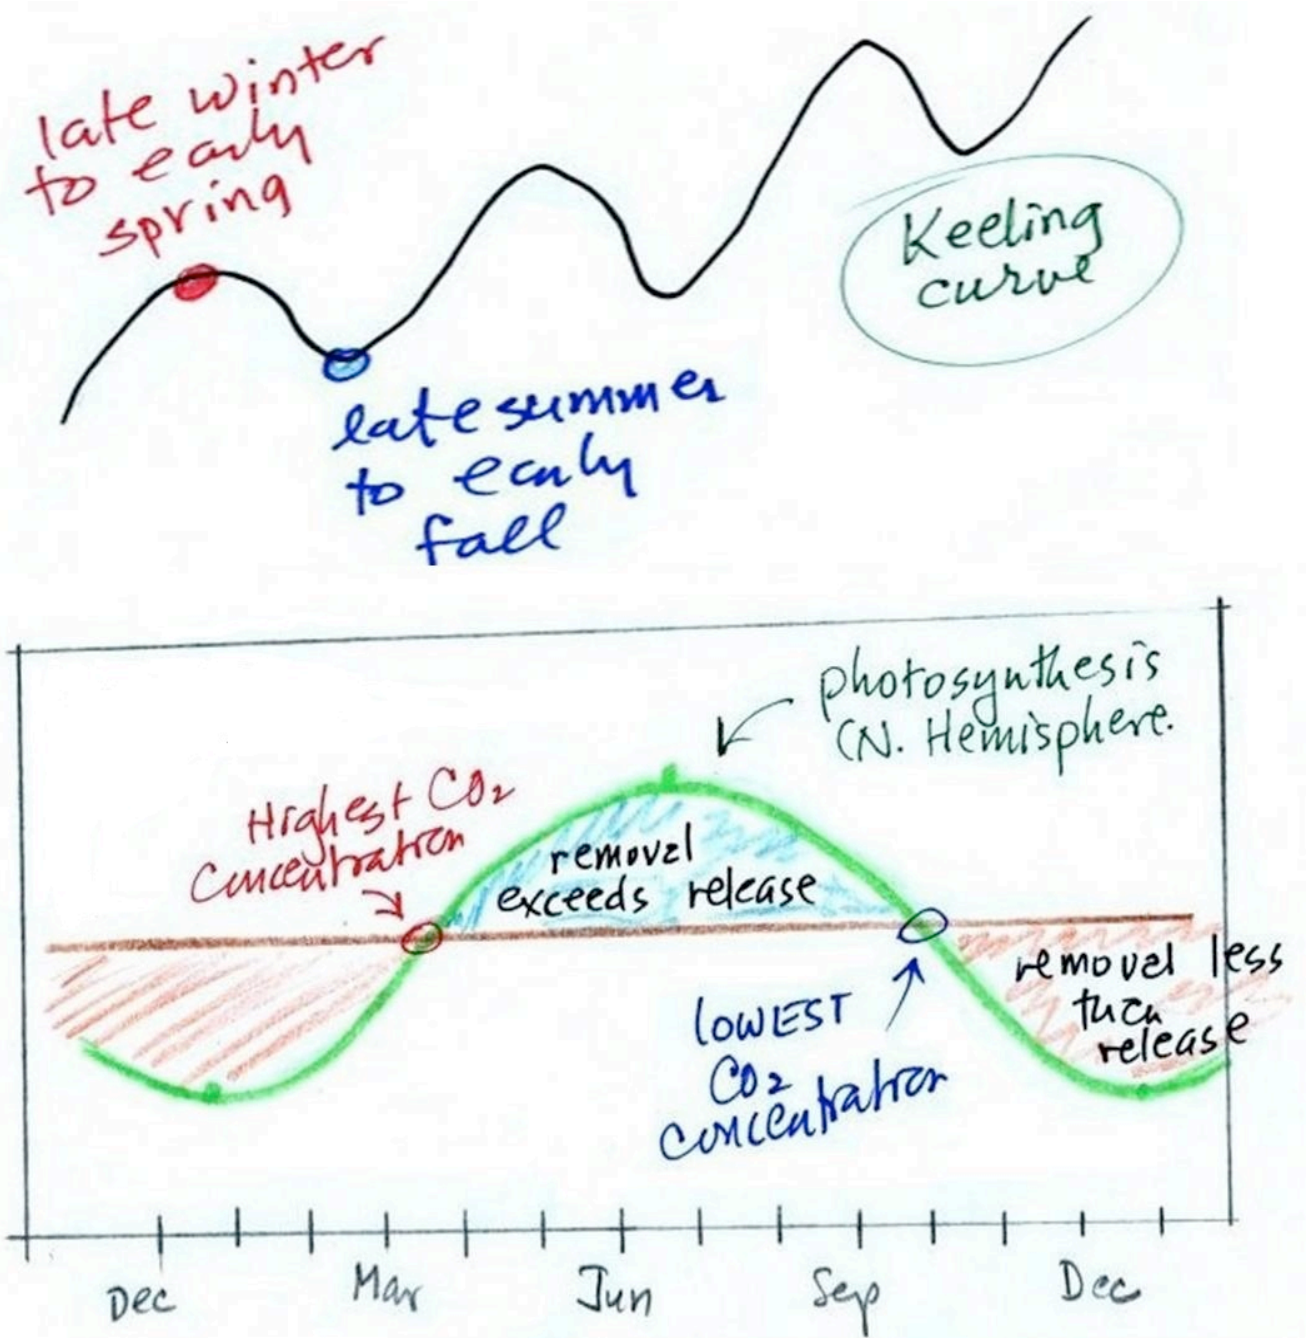 late winter
to early
spring
Keeling
curve
late summer
to early
fall
photosynthesis
(N. Hemisphere.
Highest CO₂
Concentration
removal
exceeds release
removal less
than
release
LOWEST
CO₂
concentration
Dec Mar Jun Sep Dec